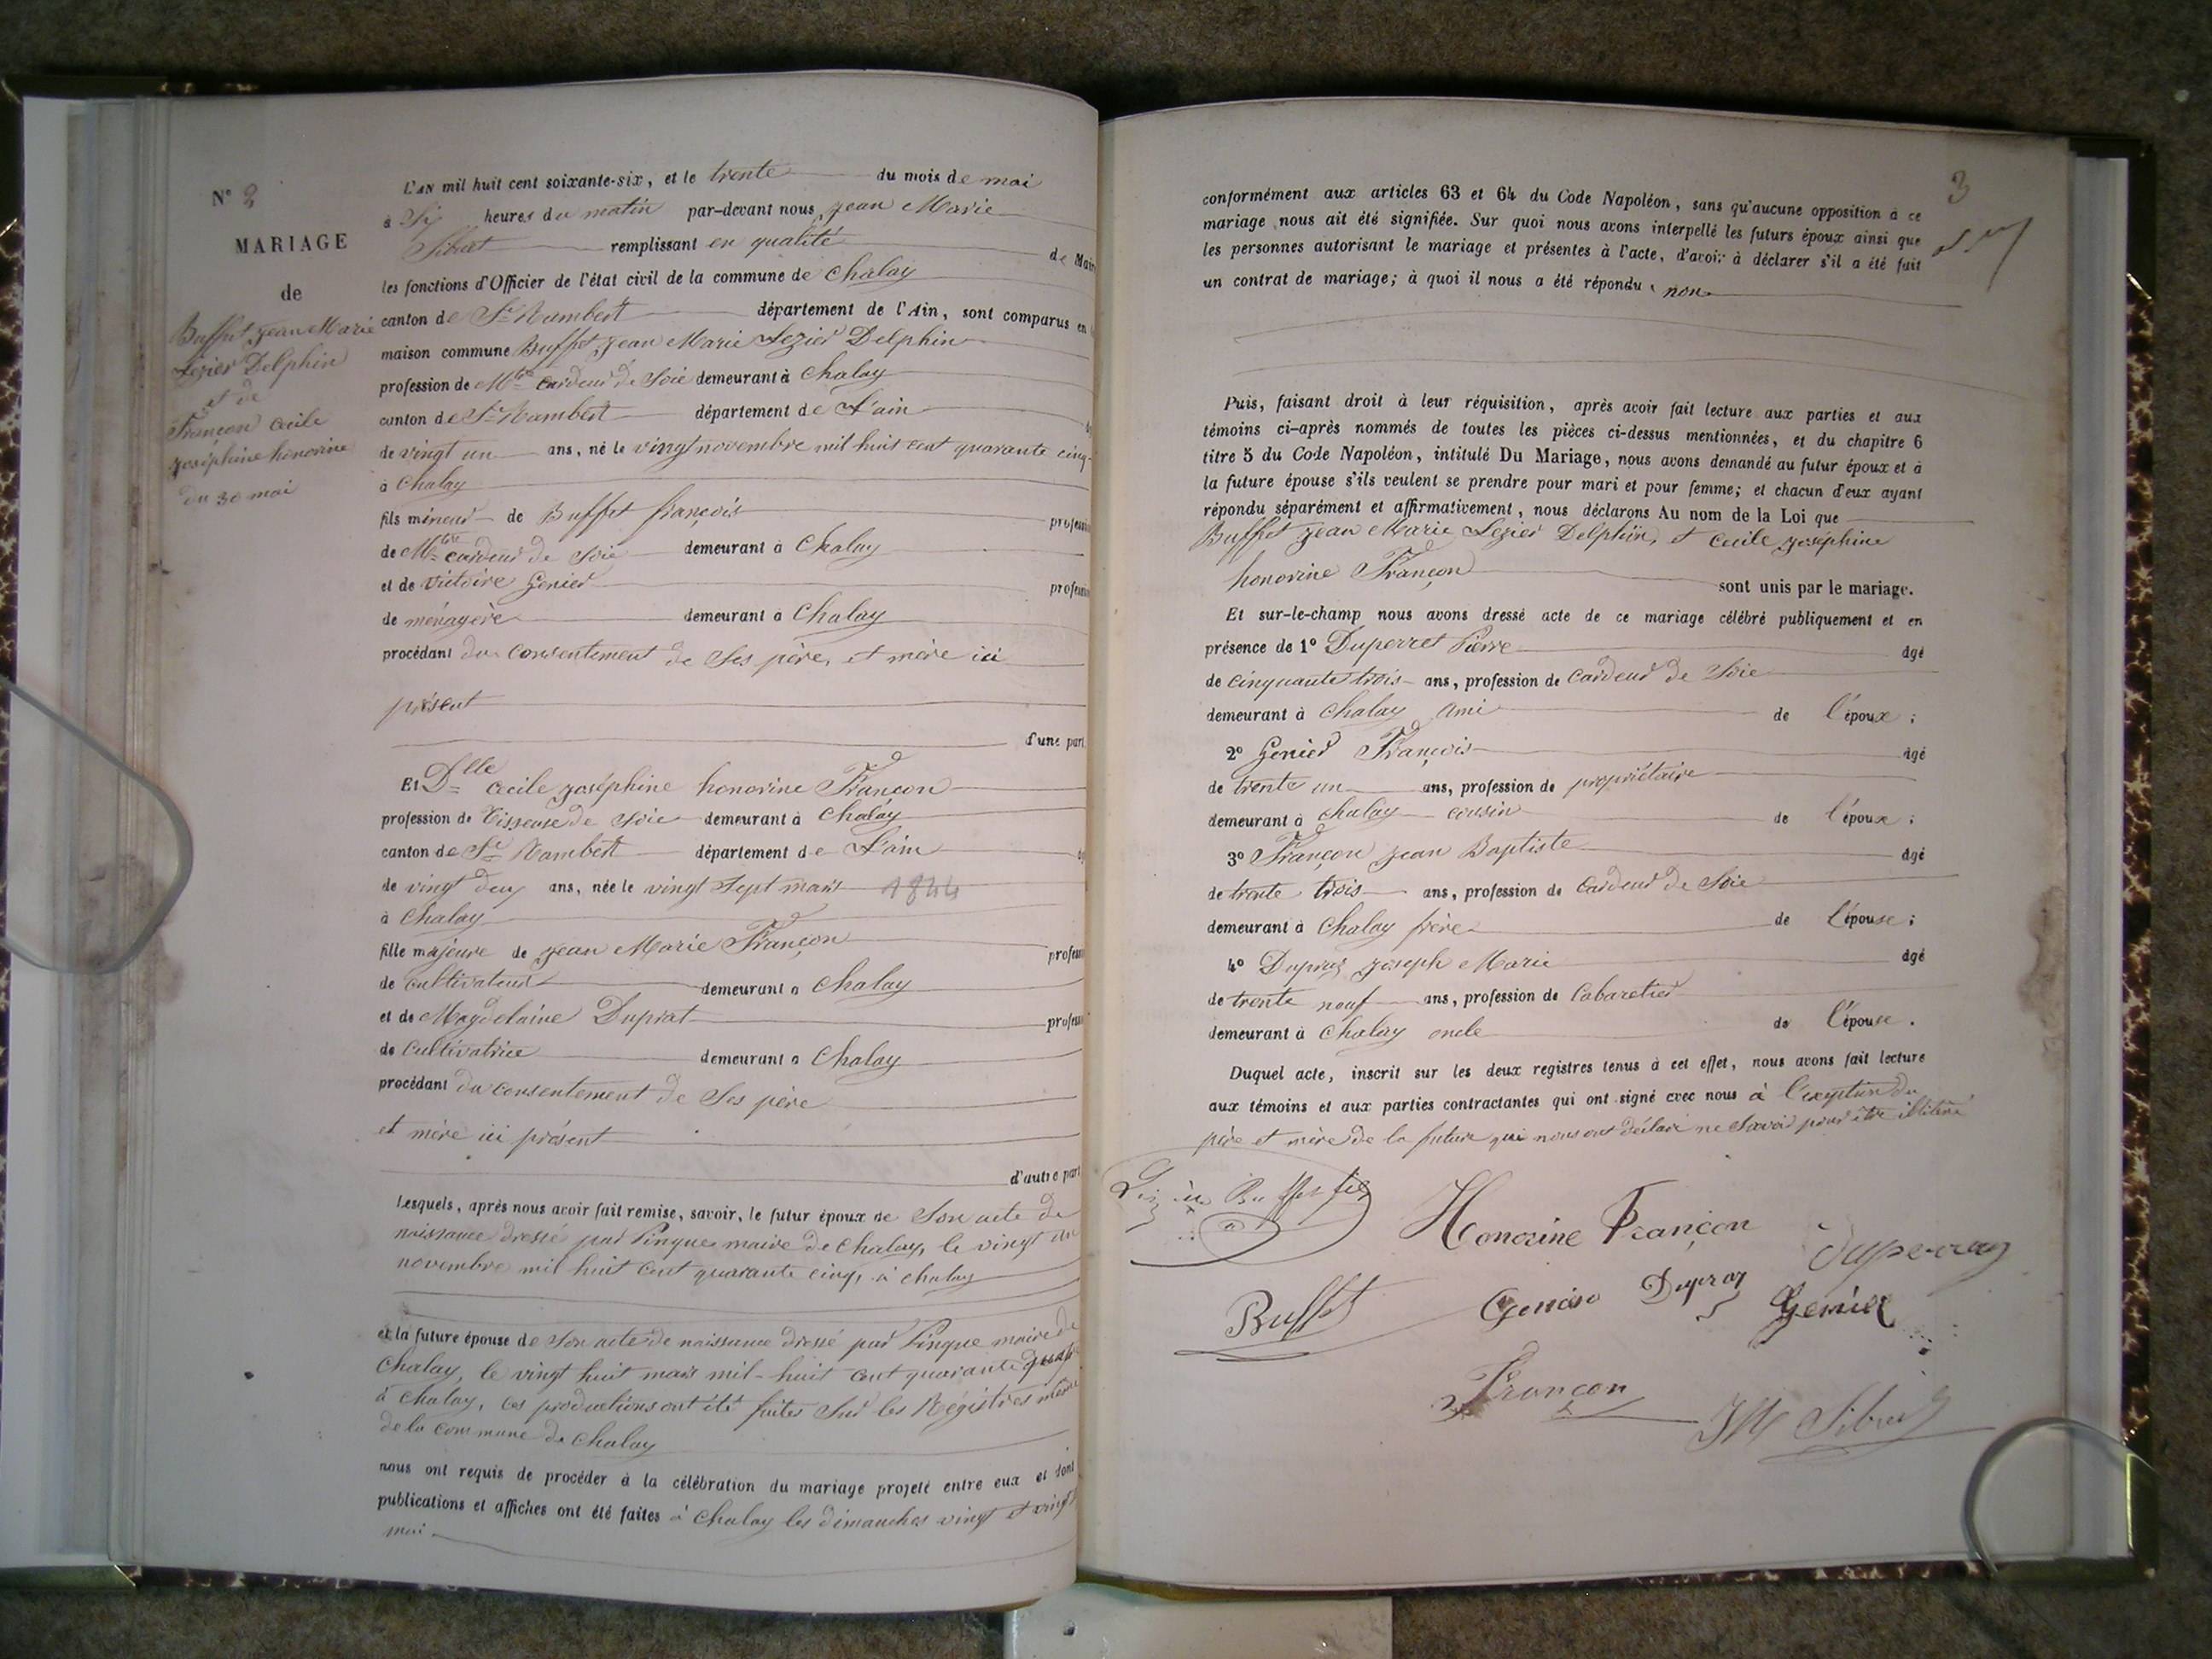 N° 3
MARIAGE
de
Buffet Jean Marie
Lezier Delphin
et de
Françon Cecile
Joséphine honorine
du 30 mai
L'AN mil huit cent soixante-six, et le trente du mois de mai
à Six heures du matin par-devant nous Jean Marie
Sibuet remplissant en qualité de Maire
les fonctions d'Officier de l'état civil de la commune de Chalay
canton de St Rambert département de l'Ain, sont comparus en
maison commune Buffet, Jean Marie Lezier Delphin
profession de Mtre cardeur de Soie demeurant à Chalay
canton de St Rambert département de L'ain
de vingt un ans, né le vingt novembre mil huit cent quarante cinq
à Chalay
fils mineur de Buffet françois profession
de Mtre cardeur de Soie demeurant à Chalay
et de Victoire Genier profession
de ménagère demeurant à Chalay
procédant du consentement de Ses père, et mère ici
présent
d'une part
Et Dlle Cecile Joséphine honorine Françon
profession de Tisseuse de Soie demeurant à Chalay
canton de St Rambert département de L'ain
de vingt deux ans, née le vingt Sept mars 1844
à Chalay
fille majeure de Jean Marie Françon profession
de cultivateur demeurant à Chalay
et de Magdelaine Duprat profession
de Cultivatrice demeurant à Chalay
procédant du consentement de Ses père
et mère ici présent
d'autre part
Lesquels, après nous avoir fait remise, savoir, le futur époux de Son acte de
naissance dressé par Pingue maire de Chalay, le vingt un
novembre mil huit cent quarante cinq, à chalay
et la future épouse de Son acte de naissance dressé par Pingue maire de
Chalay, le vingt huit mars mil-huit cent quarante quatre
à chalay, ces productions ont été faites Sur les Régistres même
de la commune de Chalay
nous ont requis de procéder à la célébration du mariage projeté entre eux et dont
publications et affiches ont été faites à Chalay les dimanches vingt et vingt
mai
3
conformément aux articles 63 et 64 du Code Napoléon, sans qu'aucune opposition à ce
mariage nous ait été signifiée. Sur quoi nous avons interpellé les futurs époux ainsi que
les personnes autorisant le mariage et présentes à l'acte, d'avoir à déclarer s'il a été fait
un contrat de mariage; à quoi il nous a été répondu, non
Puis, faisant droit à leur réquisition, après avoir fait lecture aux parties et aux
témoins ci-après nommés de toutes les pièces ci-dessus mentionnées, et du chapitre 6
titre 5 du Code Napoléon, intitulé Du Mariage, nous avons demandé au futur époux et à
la future épouse s'ils veulent se prendre pour mari et pour femme; et chacun d'eux ayant
répondu séparément et affirmativement, nous déclarons Au nom de la Loi que
Buffet Jean Marie Lezier Delphin, et Cecile Joséphine
honorine Françon sont unis par le mariage.
Et sur-le-champ nous avons dressé acte de ce mariage célébré publiquement et en
présence de 1° Duperret Pierre âgé
de cinquante trois ans, profession de Cardeur de Soie
demeurant à Chalay ami de l'époux ;
2° Genier François âgé
de trente un ans, profession de propriétaire
demeurant à chalay cousin de l'époux ;
3° Françon Jean Baptiste âgé
de trente trois ans, profession de Cardeur de Soie
demeurant à Chalay frère de l'épouse ;
4° Dupraz Joseph Marie âgé
de trente neuf ans, profession de Cabaretier
demeurant à Chalay oncle de l'épouse .
Duquel acte, inscrit sur les deux registres tenus à cet effet, nous avons fait lecture
aux témoins et aux parties contractantes qui ont signé avec nous à l'exception du
père et mère de la future qui nous ont déclaré ne Savoir pour être illitéré
Buffet fils
Honorine Françon
Duperray
Buffet
Genier
Dupraz
Genier
Françon
JM Sibuet